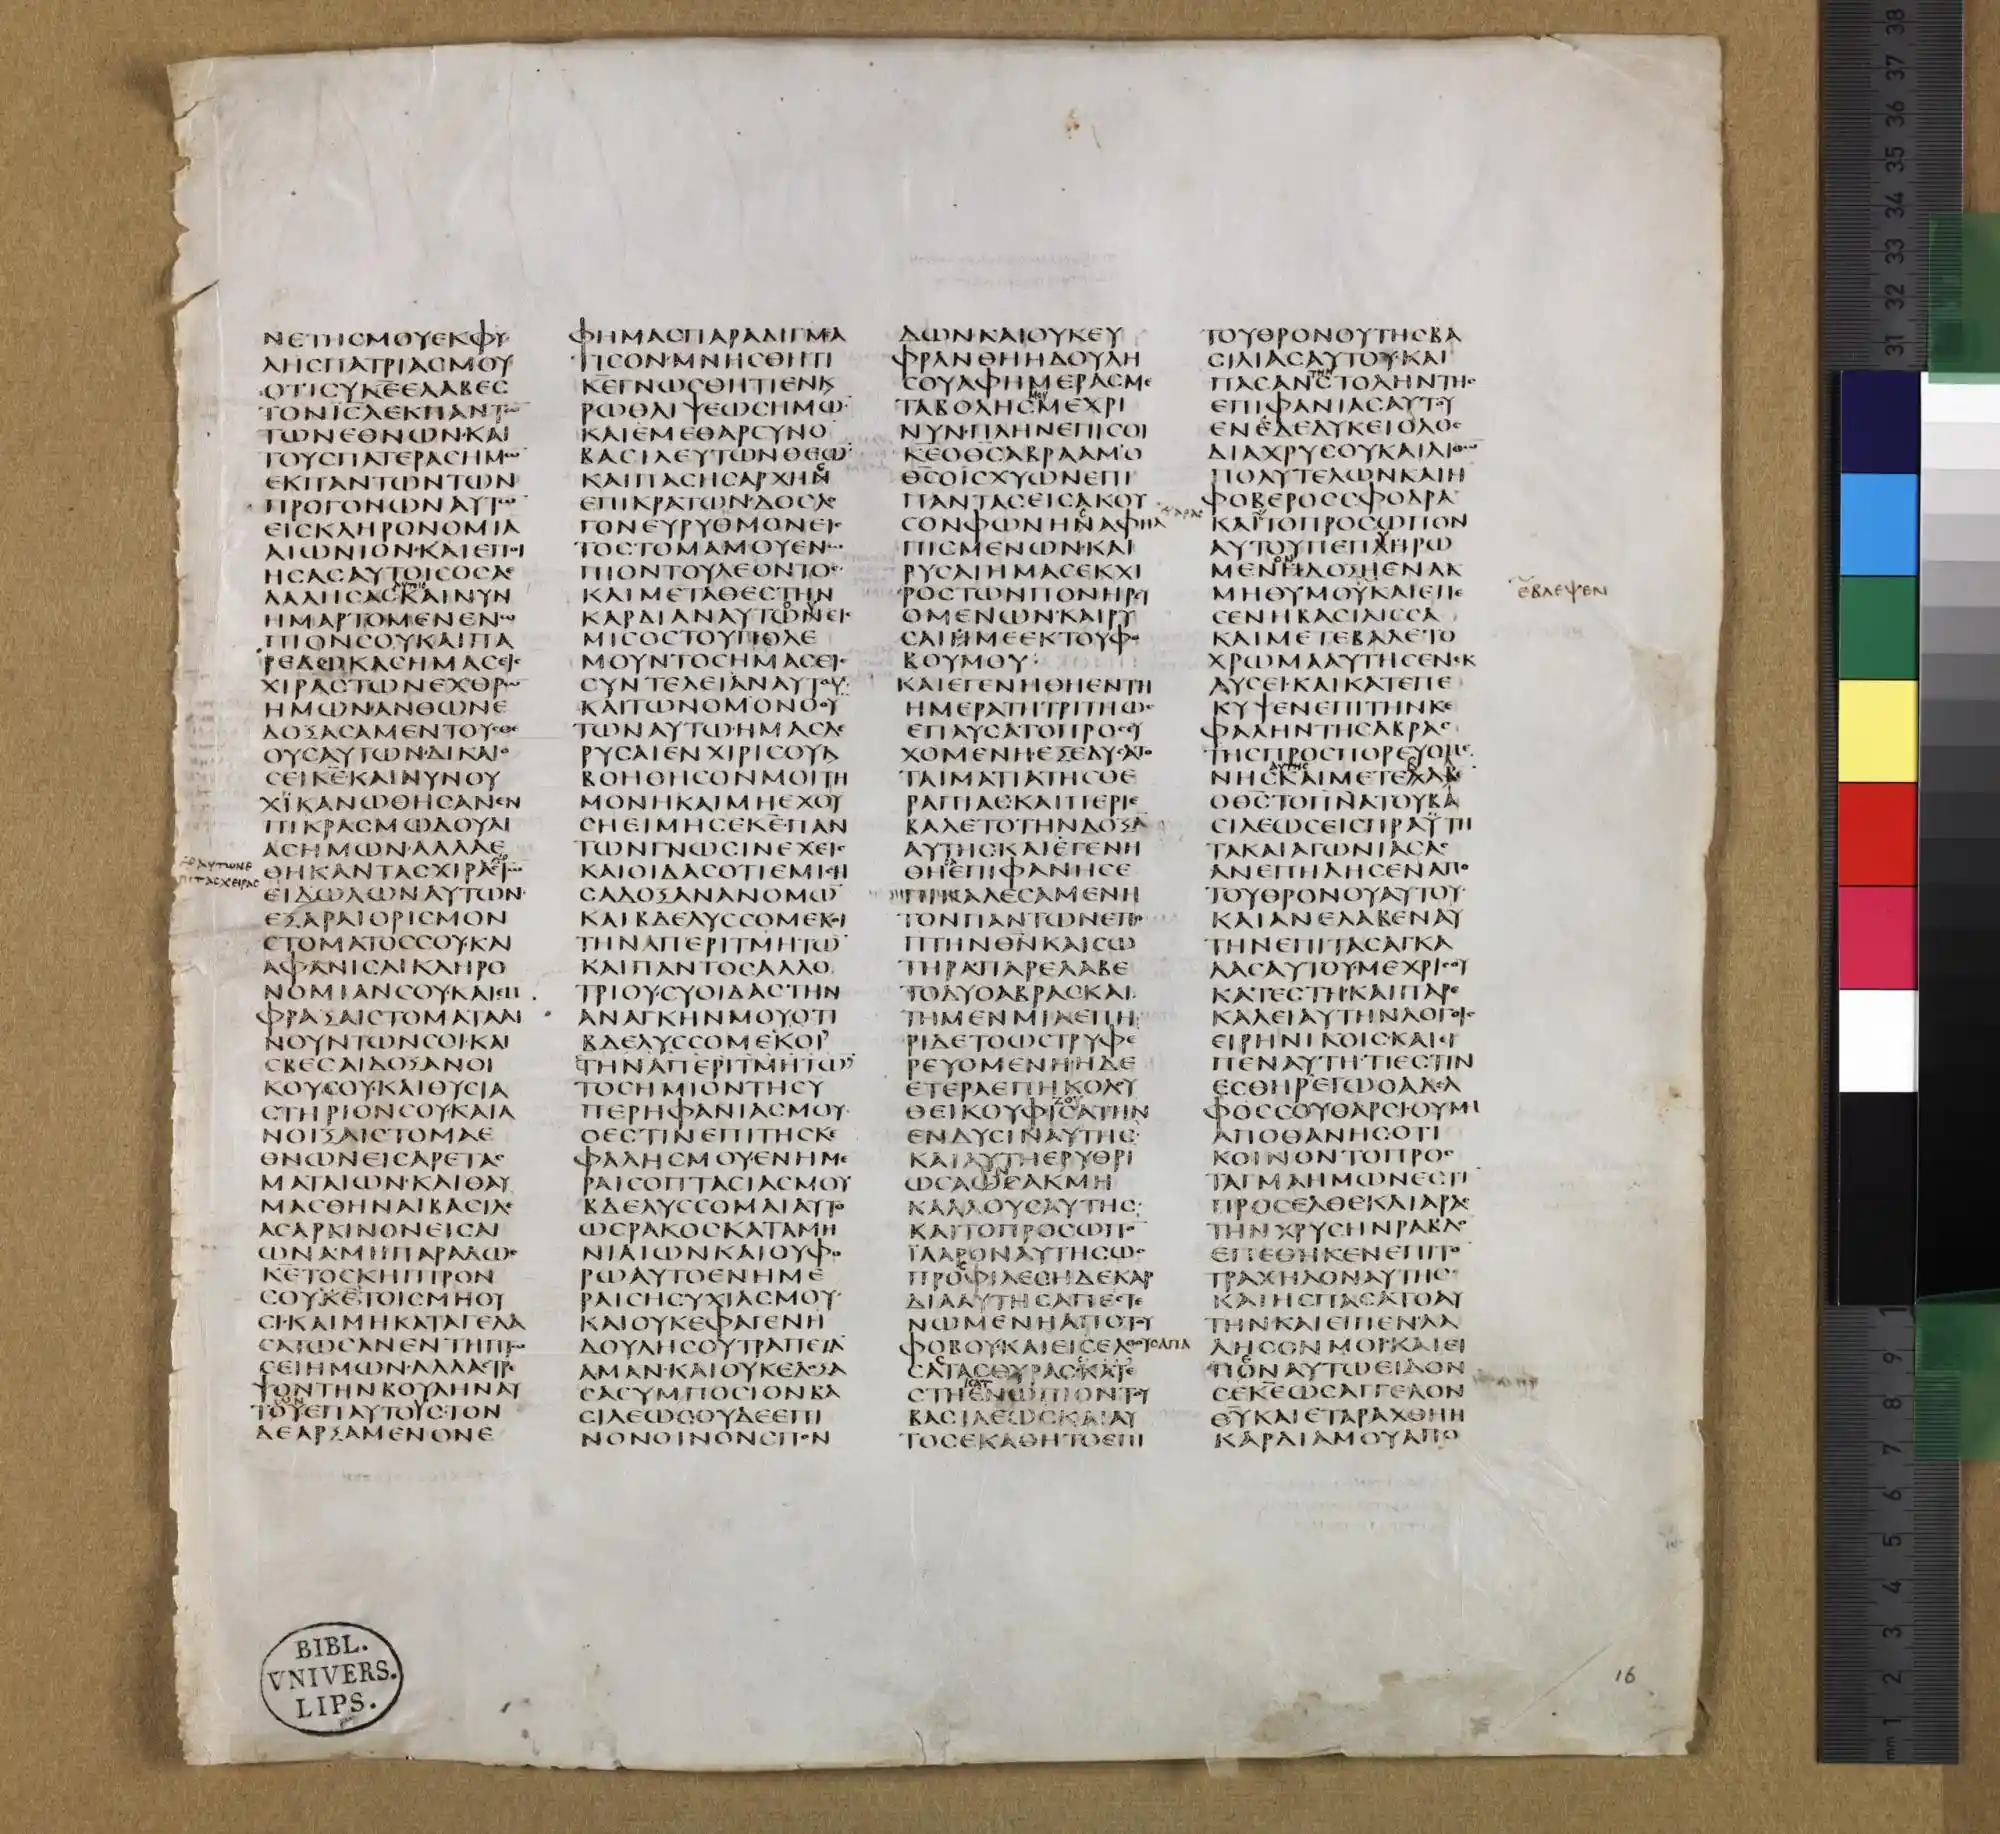 ΝΕΤΗϹΜΟΥΕΚΦΥ
ΛΗϹΠΑΤΡΙΑϹΜΟΥ
ΟΤΙϹΥΚ̅Ε̅ΕΛΑΒΕϹ
ΤΟΝΙ̅Ϲ̅Λ̅ΕΚΠΑΝΤΩ
ΤΩΝΕΘΝΩΝ·ΚΑΙ
ΤΟΥϹΠΑΤΕΡΑϹΗΜΩ
ΕΚΠΑΝΤΩΝΤΩΝ
ΠΡΟΓΟΝΩΝΑΥΤΩ
ΕΙϹΚΛΗΡΟΝΟΜΙΑ
ΑΙΩΝΙΟΝ·ΚΑΙΕΠΟΙ
ΗϹΑϹΑΥΤΟΙϹΟϹΑ
ΛΑΛΗϹΑϹΚΑΙΝΥΝ
ΗΜΑΡΤΟΜΕΝΕΝΩ
ΠΙΟΝϹΟΥΚΑΙΠΑ
ΡΕΔΩΚΑϹΗΜΑϹΕΙϹ
ΧΙΡΑϹΤΩΝΕΧΘΡΩ
ΗΜΩΝ·ΑΝΘΩΝΕ
ΔΟΞΑϹΑΜΕΝΤΟΥϹΘΕ
ΟΥϹΑΥΤΩΝ·ΔΙΚΑΙΟ
ϹΕΙΚ̅Ε̅ΚΑΙΝΥΝΟΥ
ΧΪΚΑΝΩΘΗϹΑΝΕΝ
ΠΙΚΡΑϹΜΩΔΟΥΛΙ
ΑϹΗΜΩΝ·ΑΛΛΑΕ
ΘΗΚΑΝΤΑϹΧΙΡΑϹ
ΕΙΔΩΛΩΝΑΥΤΩΝ
ΕΞΑΡΑΙΟΡΙϹΜΟΝ
ϹΤΟΜΑΤΟϹϹΟΥΚΑΙ
ΑΦΑΝΙϹΑΙΚΛΗΡΟ
ΝΟΜΙΑΝϹΟΥΚΑΙΕΜ
ΦΡΑΞΑΙϹΤΟΜΑΤΑΑΙ
ΝΟΥΝΤΩΝϹΟΙ·ΚΑΙ
ϹΒΕϹΑΙΔΟΞΑΝΟΙ
ΚΟΥϹΟΥ·ΚΑΙΘΥϹΙΑ
ϹΤΗΡΙΟΝϹΟΥΚΑΙΑ
ΝΟΙΞΑΙϹΤΟΜΑΕ
ΘΝΩΝΕΙϹΑΡΕΤΑϹ
ΜΑΤΑΙΩΝ·ΚΑΙΘΑΥ
ΜΑϹΘΗΝΑΙΒΑϹΙΛΕ
ΑϹΑΡΚΙΝΟΝΕΙϹΑΙ
ΩΝΑ·ΜΗΠΑΡΑΔΩϹ
Κ̅Ε̅ΤΟϹΚΗΠΤΡΟΝ
ϹΟΥΚ̅Ε̅ΤΟΙϹΜΗΟΥ
ϹΙ·ΚΑΙΜΗΚΑΤΑΓΕΛΑ
ϹΑΤΩϹΑΝΕΝΤΗΠΤΩ
ϹΕΙΗΜΩΝ·ΑΛΛΑϹΤΡΕ
ΨΟΝΤΗΝΒΟΥΛΗΝΑΥ
ΤΟΥΕΠΑΥΤΟΥϹ·ΤΟΝ
ΔΕΑΡΞΑΜΕΝΟΝΕ
ΦΗΜΑϹΠΑΡΑΔΙΓΜΑ
ΤΙϹΟΝ·ΜΝΗϹΘΗΤΙ
Κ̅Ε̅ΓΝΩϹΘΗΤΙΕΝΚΑΙ
ΡΩΘΛΙΨΕΩϹΗΜΩ
ΚΑΙΕΜΕΘΑΡϹΥΝΟ
ΒΑϹΙΛΕΥΤΩΝΘΕΩ
ΚΑΙΠΑϹΗϹΑΡΧΗϹ
ΕΠΙΚΡΑΤΩΝ·ΔΟϹΛΟ
ΓΟΝΕΥΡΥΘΜΟΝΕΙϹ
ΤΟϹΤΟΜΑΜΟΥΕΝΩ
ΠΙΟΝΤΟΥΛΕΟΝΤΟϹ
ΚΑΙΜΕΤΑΘΕϹΤΗΝ
ΚΑΡΔΙΑΝΑΥΤΩΝΕΙϹ
ΜΙϹΟϹΤΟΥΠΟΛΕ
ΜΟΥΝΤΟϹΗΜΑϹΕΙϹ
ϹΥΝΤΕΛΕΙΑΝΑΥΤΟΥ
ΚΑΙΤΩΝΟΜΟΝΟΟΥ
ΤΩΝΑΥΤΩ·ΗΜΑϹΔΕ
ΡΥϹΑΙΕΝΧΙΡΙϹΟΥΚΑΙ
ΒΟΗΘΗϹΟΝΜΟΙΤΗ
ΜΟΝΗΚΑΙΜΗΕΧΟΥ
ϹΗΕΙΜΗϹΕΚ̅Ε̅·ΠΑΝ
ΤΩΝΓΝΩϹΙΝΕΧΕΙϹ
ΚΑΙΟΙΔΑϹΟΤΙΕΜΙϹΗ
ϹΑΔΟΞΑΝΑΝΟΜΩ
ΚΑΙΒΔΕΛΥϹϹΟΜΕΚΟΙ
ΤΗΝΑΠΕΡΙΤΜΗΤΩ
ΚΑΙΠΑΝΤΟϹΑΛΛΟ
ΤΡΙΟΥ·ϹΥΟΙΔΑϹΤΗΝ
ΑΝΑΓΚΗΝΜΟΥΟΤΙ
ΒΔΕΛΥϹϹΟΜΕΚΟΙ
ΤΗΝΑΠΕΡΙΤΜΗΤΩ
ΤΟϹΗΜΙΟΝΤΗϹΥ
ΠΕΡΗΦΑΝΙΑϹΜΟΥ
ΟΕϹΤΙΝΕΠΙΤΗϹΚΕ
ΦΑΛΗϹΜΟΥΕΝΗΜΕ
ΡΑΙϹΟΠΤΑϹΙΑϹΜΟΥ
ΒΔΕΛΥϹϹΟΜΑΙΑΥΤΟ
ΩϹΡΑΚΟϹΚΑΤΑΜΗ
ΝΙΑΙΩΝΚΑΙΟΥΦΟ
ΡΩΑΥΤΟΕΝΗΜΕ
ΡΑΙϹΗϹΥΧΙΑϹΜΟΥ
ΚΑΙΟΥΚΕΦΑΓΕΝΗ
ΔΟΥΛΗϹΟΥΤΡΑΠΕΖΑ
ΑΜΑΝ·ΚΑΙΟΥΚΕΔΟΞΑ
ϹΑϹΥΜΠΟϹΙΟΝΒΑ
ϹΙΛΕΩϹΟΥΔΕΕΠΙ
ΝΟΝΟΙΝΟΝϹΠΟΝ
ΔΩΝ·ΚΑΙΟΥΚΕΥ
ΦΡΑΝΘΗΗΔΟΥΛΗ
ϹΟΥΑΦΗΜΕΡΑϹΜΕ
ΤΑΒΟΛΗϹΜΕΧΡΙ
ΝΥΝ·ΠΛΗΝΕΠΙϹΟΙ
Κ̅Ε̅Ο̅Θ̅Ϲ̅ΑΒΡΑΑΜ·Ο
Θ̅Ϲ̅ΟΙϹΧΥΩΝΕΠΙ
ΠΑΝΤΑϹΕΙϹΑΚΟΥ
ϹΟΝΦΩΝΗΝΑΦΗΛ
ΠΙϹΜΕΝΩΝ·ΚΑΙ
ΡΥϹΑΙΗΜΑϹΕΚΧΙ
ΡΟϹΤΩΝΠΟΝΗΡΕΥ
ΟΜΕΝΩΝ·ΚΑΙΡΥ
ϹΑΙΜΕΕΚΤΟΥΦΟ
ΒΟΥΜΟΥ·
ΚΑΙΕΓΕΝΗΘΗΕΝΤΗ
ΗΜΕΡΑΤΗΤΡΙΤΗΩϹ
ΕΠΑΥϹΑΤΟΠΡΟϹΕΥ
ΧΟΜΕΝΗ·ΕΞΕΔΥϹΑΤΟ
ΤΑΙΜΑΤΙΑΤΗϹΘΕ
ΡΑΠΙΑϹΚΑΙΠΕΡΙΕ
ΒΑΛΕΤΟΤΗΝΔΟΞΑ
ΑΥΤΗϹΚΑΙΕΓΕΝΗ
ΘΗΕΠΙΦΑΝΗϹΕ
ΠΙΚΑΛΕϹΑΜΕΝΗ
ΤΟΝΠΑΝΤΩΝΕΠΟ
ΠΤΗΝΘ̅Ν̅ΚΑΙϹΩ
ΤΗΡΑΠΑΡΕΛΑΒΕ
ΤΟΔΥΟΑΒΡΑϹΚΑΙ
ΤΗΜΕΝΜΙΑΕΠΗ
ΡΙΔΕΤΟΩϹΤΡΥΦΕ
ΡΕΥΟΜΕΝΗ·ΗΔΕ
ΕΤΕΡΑΕΠΗΚΟΛΟΥ
ΘΕΙΚΟΥΦΙϹΑΤΗΝ
ΕΝΔΥϹΙΝΑΥΤΗϹ
ΚΑΙΑΥΤΗΕΡΥΘΡΙ
ΩϹΑΩϹΕΑΚΜΗ
ΚΑΛΛΟΥϹΑΥΤΗϹ·
ΚΑΙΤΟΠΡΟϹΩΠΟ
ΪΛΑΡΟΝΑΥΤΗϹΩϹ
ΠΡΟϹΦΙΛΕϹΗΔΕΚΑΡ
ΔΙΑΑΥΤΗϹΑΠΕϹΤΕ
ΝΩΜΕΝΗΑΠΟΤΟΥ
ΦΟΒΟΥΚΑΙΕΙϹΕΛΘΟΥϹΑΠΑ
ϹΑΤΑϹΘΥΡΑϹΚΑΤΕ
ϹΤΗΕΝΩΠΙΟΝΤΟΥ
ΒΑϹΙΛΕΩϹΚΑΙΑΥ
ΤΟϹΕΚΑΘΗΤΟΕΠΙ
ΤΟΥΘΡΟΝΟΥΤΗϹΒΑ
ϹΙΛΙΑϹΑΥΤΟΥ·ΚΑΙ
ΠΑϹΑΝϹΤΟΛΗΝΤΗϹ
ΕΠΙΦΑΝΙΑϹΑΥΤΟΥ
ΕΝΕΔΕΔΥΚΕΙΟΛΟϹ
ΔΙΑΧΡΥϹΟΥΚΑΙΛΙΘΩ
ΠΟΛΥΤΕΛΩΝΚΑΙΗ
ΦΟΒΕΡΟϹϹΦΟΔΡΑ
ΚΑΙΤΟΠΡΟϹΩΠΟΝ
ΑΥΤΟΥΠΕΠΛΗΡΩ
ΜΕΝΗΔΟΞΗΕΝΑΚ
ΜΗΘΥΜΟΥΚΑΙΕΠΕ
ϹΕΝΗΒΑϹΙΛΙϹϹΑ
ΚΑΙΜΕΤΕΒΑΛΕΤΟ
ΧΡΩΜΑΑΥΤΗϹΕΝΕΚ
ΛΥϹΕΙ·ΚΑΙΚΑΤΕΠΕ
ΚΥΨΕΝΕΠΙΤΗΝΚΕ
ΦΑΛΗΝΤΗϹΑΒΡΑϹ
ΤΗϹΠΡΟϹΠΟΡΕΥΟΜΕ
ΝΗϹΚΑΙΜΕΤΕΒΑΛΕ
ΟΘ̅Ϲ̅ΤΟΠ̅Ν̅Α̅ΤΟΥΒΑ
ϹΙΛΕΩϹΕΙϹΠΡΑΫΤΗ
ΤΑΚΑΙΑΓΩΝΙΑϹΑϹ
ΑΝΕΠΗΔΗϹΕΝΑΠΟ
ΤΟΥΘΡΟΝΟΥΑΥΤΟΥ·
ΚΑΙΑΝΕΛΑΒΕΝΑΥ
ΤΗΝΕΠΙΤΑϹΑΓΚΑ
ΛΑϹΑΥΤΟΥΜΕΧΡΙϹΟΥ
ΚΑΤΕϹΤΗ·ΚΑΙΠΑΡΕ
ΚΑΛΕΙΑΥΤΗΝΛΟΓΟΙϹ
ΕΙΡΗΝΙΚΟΙϹ·ΚΑΙΕΙ
ΠΕΝΑΥΤΗ·ΤΙΕϹΤΙΝ
ΕϹΘΗΡ·ΕΓΩΟΑΔΕΛ
ΦΟϹϹΟΥΘΑΡϹΙΟΥΜΗ
ΑΠΟΘΑΝΗϹΟΤΙ
ΚΟΙΝΟΝΤΟΠΡΟϹ
ΤΑΓΜΑΗΜΩΝΕϹΤΙ
ΠΡΟϹΕΛΘΕΚΑΙΑΡΑϹ
ΤΗΝΧΡΥϹΗΝΡΑΒΔΟ
ΕΠΕΘΗΚΕΝΕΠΙΤΟ
ΤΡΑΧΗΛΟΝΑΥΤΗϹ·
ΚΑΙΗϹΠΑϹΑΤΟΑΥ
ΤΗΝ·ΚΑΙΕΙΠΕΝ·ΛΑ
ΛΗϹΟΝΜΟΙ·ΚΑΙΕΙ
ΠΟΝΑΥΤΩΕΙΔΟΝ
ϹΕΚ̅Ε̅ΩϹΑΓΓΕΛΟΝ
Θ̅Υ̅ΚΑΙΕΤΑΡΑΧΘΗΗ
ΚΑΡΔΙΑΜΟΥΑΠΟ
ΕΒΛΕΨΕΝ
BIBL.
VNIVERS.
LIPS.
16